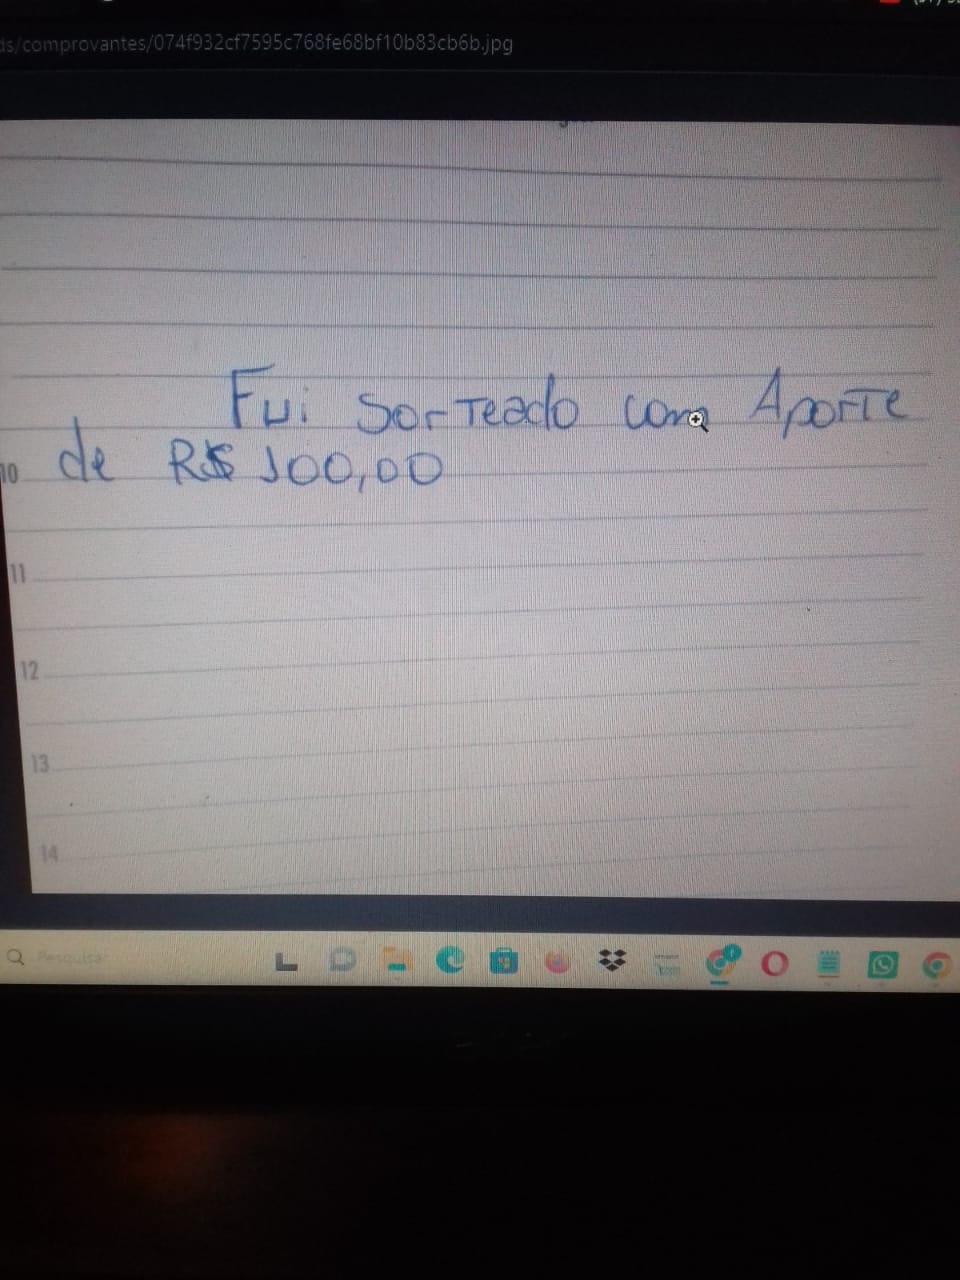 ds/comprovantes/074f932cf7595c768fe68bf10b83cb6b.jpg
Fui Sorteado com Aporte
10 de R$ 100,00
11
12
13
14
Pesquisar